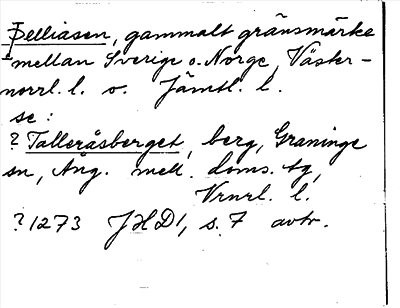 Þelliasen, gammalt gränsmärke
mellan Sverige o. Norge, Väster-
norrl. l. o. Jämtl. l.
se:
? Talleråsberget, berg, Graninge
sn, Ång. mell. doms. tg,
Vrnrl. l.
? 1273 JHD 1, s. 7 avtr.